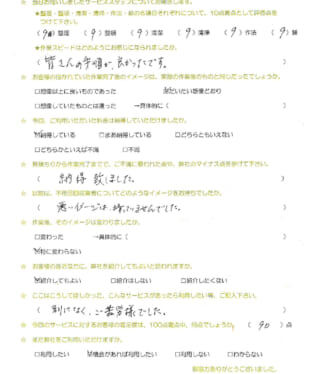 ☆ 当日お伺いしましたサービススタッフについてお聞きします。
★整理・整頓・清潔・清掃・作法・躾の6項目それぞれについて、10点満点として評価点を
つけて下さい。
( 9 点) 整理 ( 9 ) 整頓 ( 9 ) 清潔 ( 9 ) 清掃 ( 9 ) 作法 ( 9 ) 躾
★作業スピードはどのようにお感じになられましたか。
( 皆さんの手順が良かったです。
☆ お客様の描かれていた作業完了後のイメージは、実際の作業後のものと同じしたったでしょうか。
□想像以上に良いものであった ☑だいたい想像どおり
□想像していたものとは違った →具体的に(
☆ 今回、ご利用いただいた料金は納得していただけましたか。
☑納得している □まあ納得している □どちらともいえない
□どちらかといえば不満 □不満
☆ 見積もりから作業完了までで、ご不満に思われた点や、弊社のマイナス点を挙げて下さい。
( 納得致しました。
☆ 以前は、不用品回収業者についてどのようなイメージをお持ちでしたか。
( 悪いイメージは、持っていませんでした。
☆ 作業後、そのイメージは変わりましたか。
□変わった →具体的に(
☑特に変わらない
☆ お客様の身近な方に、弊社を紹介してもよいと思われますか。
☑紹介してもよい □紹介はしない □紹介したくない
☆ ここはこうしてほしかった、こんなサービスがあったら利用したい等、ご記入下さい。
( 別になく、ご苦労様でした。
☆ 今回のサービスに対するお客様の満足度は、100点満点中、何点でしょうか。 ( 90 ) 点
☆ また弊社をご利用いただけますか。
□利用したい ☑機会があれば利用したい □利用しない □わからない
ご協力ありがとうございました。